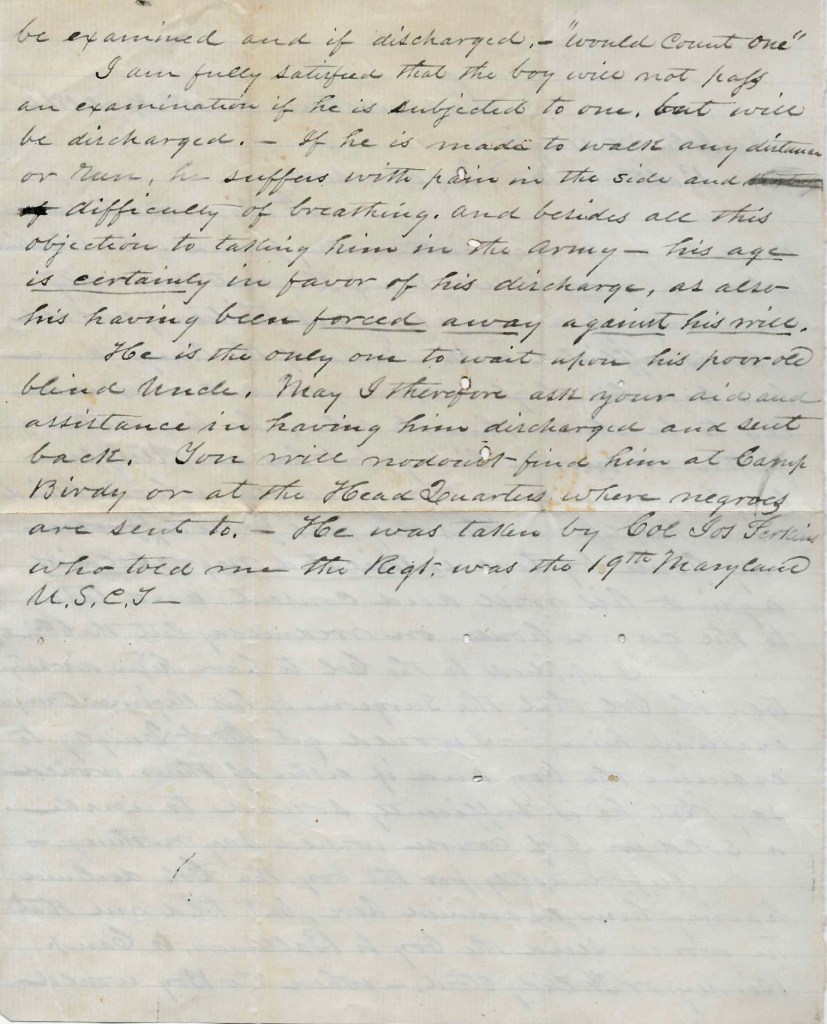 be examined and if discharged, – "would count one"
I am fully satisfied that the boy will not pass
an examination if he is subjected to one, but will
be discharged. – If he is made to walk any distance
or run, he suffers with pain in the side and
difficulty of breathing. and besides all this
objection to taking him in the army – his age
is certainly in favor of his discharge, as also
his having been forced away against his will.
He is the only one to wait upon his poor old
blind Uncle. May I therefore ask your aid and
assistance in having him discharged and sent
back. You will nodoubt find him at Camp
Birdy or at the Head Quarters where negroes
are sent to. – He was taken by Col Jos Perkins
who told me the Regt. was the 19th Maryland
U.S.C.T –